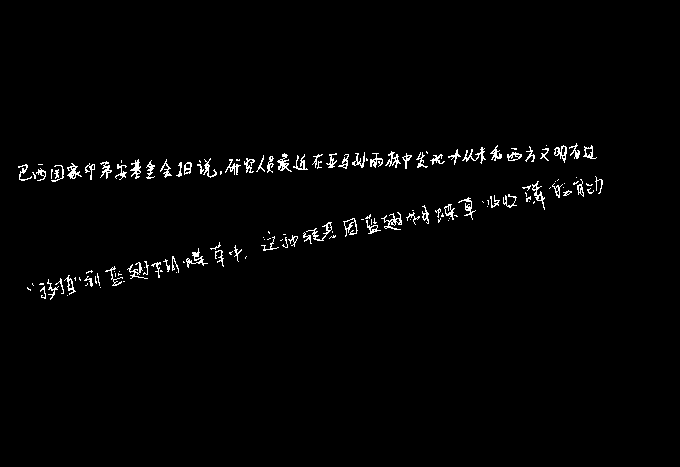 巴西国家印第安基金会18日说,研究人员最近在亚马孙雨林中发现从未和西方文明有过
“移植”到蓝翅蝴蝶草中,这种转基因蓝翅蝴蝶草吸收磷的能力